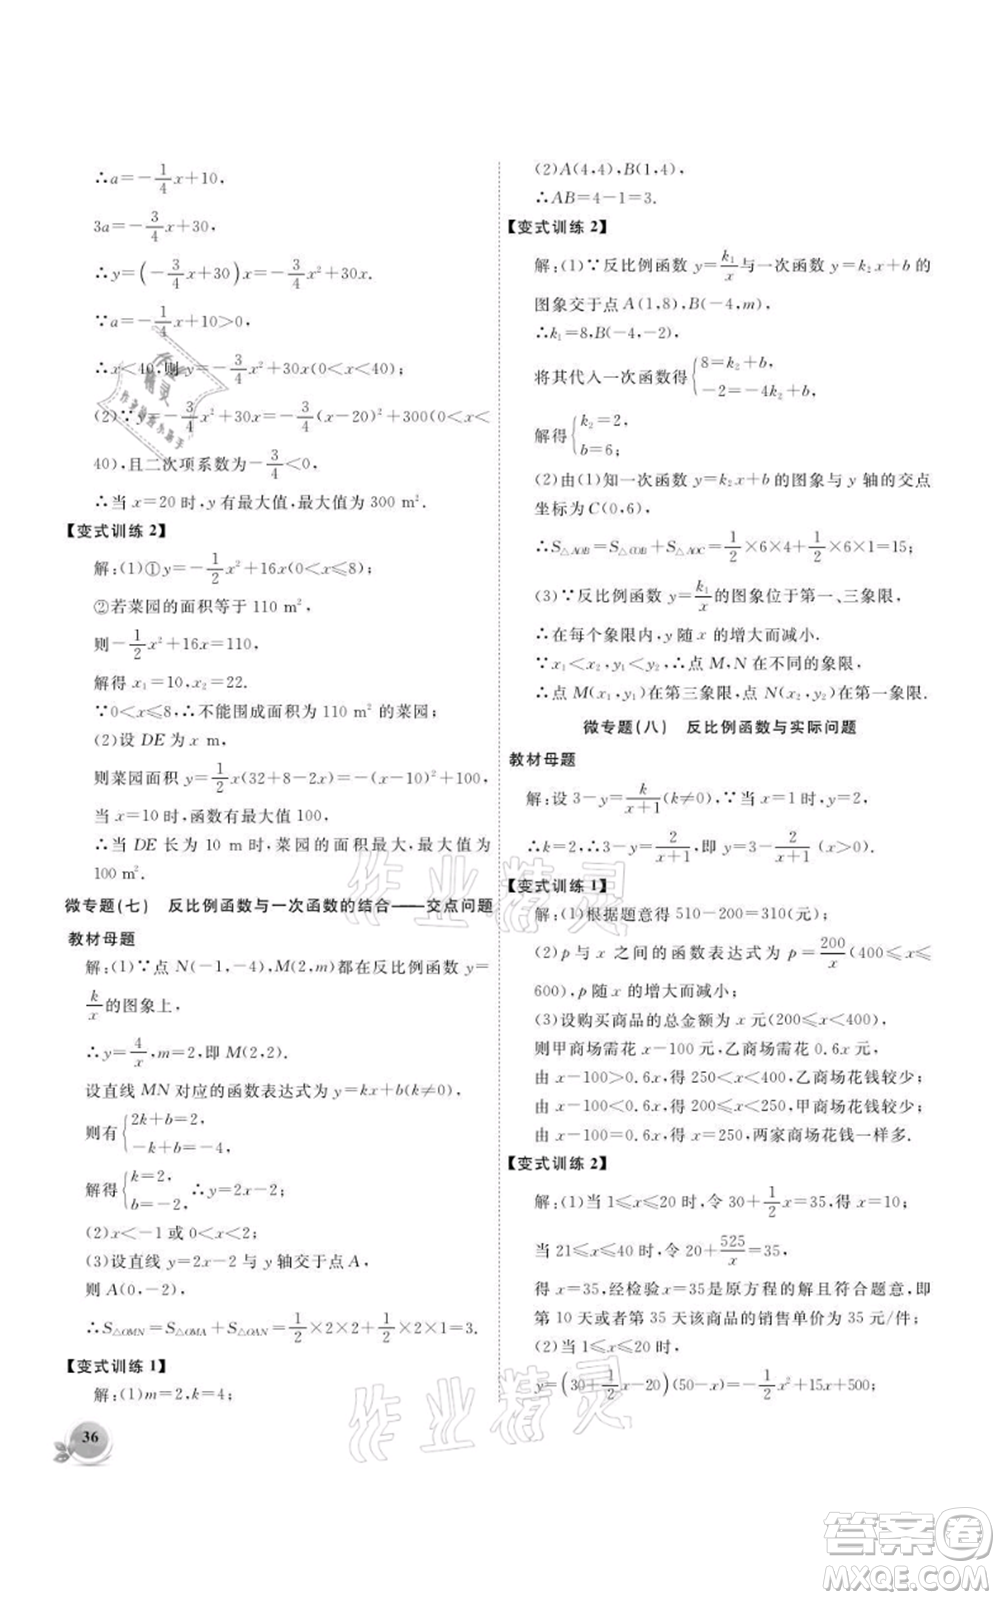 ∴a=-1/4x+10,
3a=-3/4x+30,
∴y=(-3/4x+30)x=-3/4x²+30x.
∵a=-1/4x+10>0,
∴x<40,则 y=-3/4x²+30x(0<x<40);
(2)∵y=-3/4x²+30x=-3/4(x-20)²+300(0<x<
40),且二次项系数为-3/4<0,
∴当 x=20 时,y 有最大值,最大值为 300 m².
【变式训练 2】
解:(1)①y=-1/2x²+16x(0<x≤8);
②若菜园的面积等于 110 m²,
则-1/2x²+16x=110,
解得 x₁=10,x₂=22.
∵0<x≤8,∴不能围成面积为 110 m² 的菜园;
(2)设 DE 为 x m,
则菜园面积 y=1/2x(32+8-2x)=-(x-10)²+100,
当 x=10 时,函数有最大值 100,
∴当 DE 长为 10 m 时,菜园的面积最大,最大值为
100 m².
微专题(七) 反比例函数与一次函数的结合——交点问题
教材母题
解:(1)∵点 N(-1,-4),M(2,m)都在反比例函数 y=
k/x 的图象上,
∴y=4/x,m=2,即 M(2,2).
设直线 MN 对应的函数表达式为 y=kx+b(k≠0),
则有{2k+b=2, -k+b=-4,
解得{k=2 b=-2, ∴y=2x-2;
(2)x<-1 或 0<x<2;
(3)设直线 y=2x-2 与 y 轴交于点 A,
则 A(0,-2),
∴S△OMN=S△OMA+S△OAN=1/2×2×2+1/2×2×1=3.
【变式训练 1】
解:(1)m=2,k=4;
36
(2)A(4,4),B(1,4),
∴AB=4-1=3.
【变式训练 2】
解:(1)∵反比例函数 y=k₁/x 与一次函数 y=k₂x+b 的
图象交于点 A(1,8),B(-4,m),
∴k₁=8,B(-4,-2),
将其代入一次函数得{8=k₂+b, -2=-4k₂+b,
解得{k₂=2, b=6;
(2)由(1)知一次函数 y=k₂x+b 的图象与 y 轴的交点
坐标为 C(0,6),
∴S△AOB=S△COB+S△AOC=1/2×6×4+1/2×6×1=15;
(3)∵反比例函数 y=k₁/x 的图象位于第一、三象限,
∴在每个象限内,y 随 x 的增大而减小.
∵x₁<x₂,y₁<y₂,∴点 M,N 在不同的象限,
∴点 M(x₁,y₁)在第三象限,点 N(x₂,y₂)在第一象限.
微专题(八) 反比例函数与实际问题
教材母题
解:设 3-y=k/(x+1)(k≠0),∵当 x=1 时,y=2,
∴k=2,∴3-y=2/(x+1),即 y=3-2/(x+1)(x>0).
【变式训练 1】
解:(1)根据题意得 510-200=310(元);
(2)p 与 x 之间的函数表达式为 p=200/x(400≤x<
600),p 随 x 的增大而减小;
(3)设购买商品的总金额为 x 元(200≤x<400),
则甲商场需花 x-100 元,乙商场需花 0.6x 元,
由 x-100>0.6x,得 250<x<400,乙商场花钱较少;
由 x-100<0.6x,得 200≤x<250,甲商场花钱较少;
由 x-100=0.6x,得 x=250,两家商场花钱一样多.
【变式训练 2】
解:(1)当 1≤x≤20 时,令 30+1/2x=35,得 x=10;
当 21≤x≤40 时,令 20+525/x=35,
得 x=35,经检验 x=35 是原方程的解且符合题意,即
第 10 天或者第 35 天该商品的销售单价为 35 元/件;
(2)当 1≤x≤20 时,
y=(30+1/2x-20)(50-x)=-1/2x²+15x+500;
作业精灵
作业精灵
答案圈
MXQE.COM